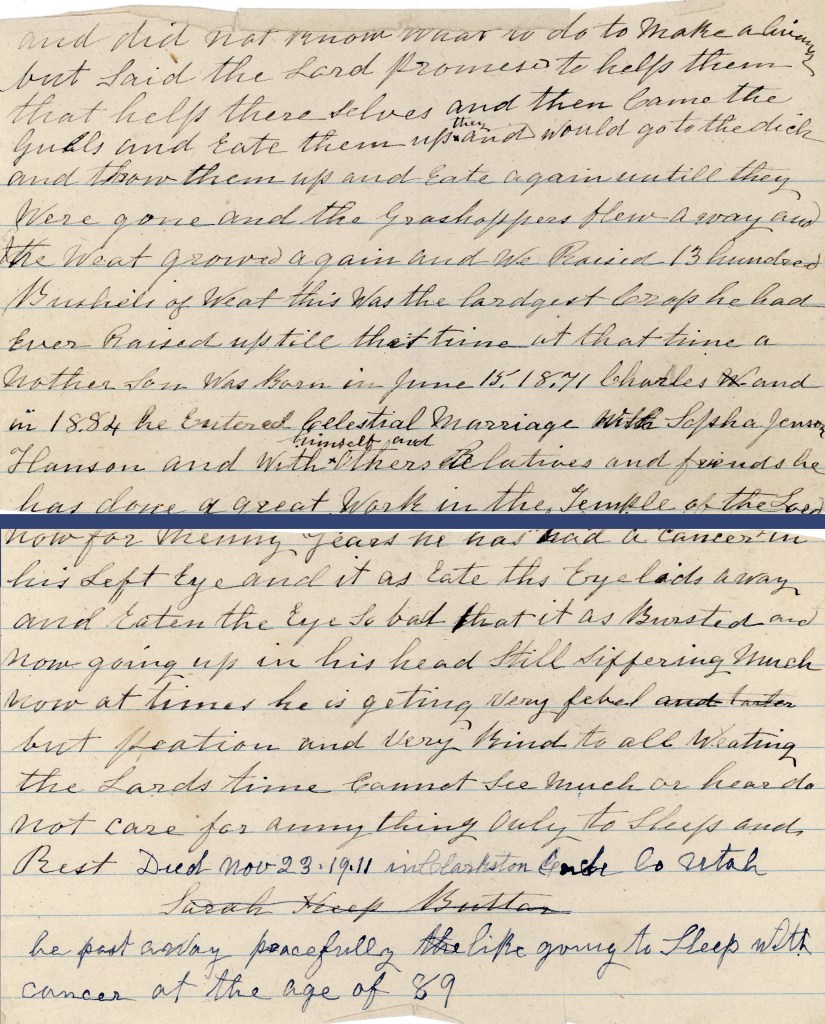 and did not Know What to do to Make a living
but Said the Lord Promesed to help them
that helps there selves and then Came the
Gulls and Eate them up
they
and would go to the dich
and throw them up and Eate again untill they
Were gone and the Grashoppers flew away and
the Weat growed again and We Raised 13 hundred
Bushels of Weat this Was the lardgest Crop he had
Ever Raised up till that time at that time a
Nother Son Was Born in June 15. 1871 Charles and
in 1884 he Entered Celestial Marriage With Sopha Jenson
himself and
Hanson and With Others Relatives and friends he
has done a great Work in the Temple of the Lord
now for Menny Years he has had a cancer in
his Left Eye and it as Eate ths Eye lids away
and Eaten the Eye So bad that it as Bursted and
Now going up in his head Still Siffering Much
now at times he is geting Very febel and
but peation and Very Kind to all Weating
the Lards time Cannot See Much or hear do
not care for anny thing Only to Sleep and
Rest Died Nov 23. 1911 in Clarkston Cache Co Utah
Sarah Keep Buttar
he past away peacefully the like going to Sleep with
cancer at the age of 89